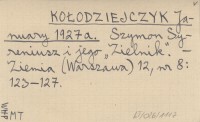 KOŁODZIEJCZYK Ja-
nuary 1927a. Szymon Sy-
reniusz i jego „Zielnik". –
Ziemia (Warszawa) 12, nr 8:
123–127.
MT